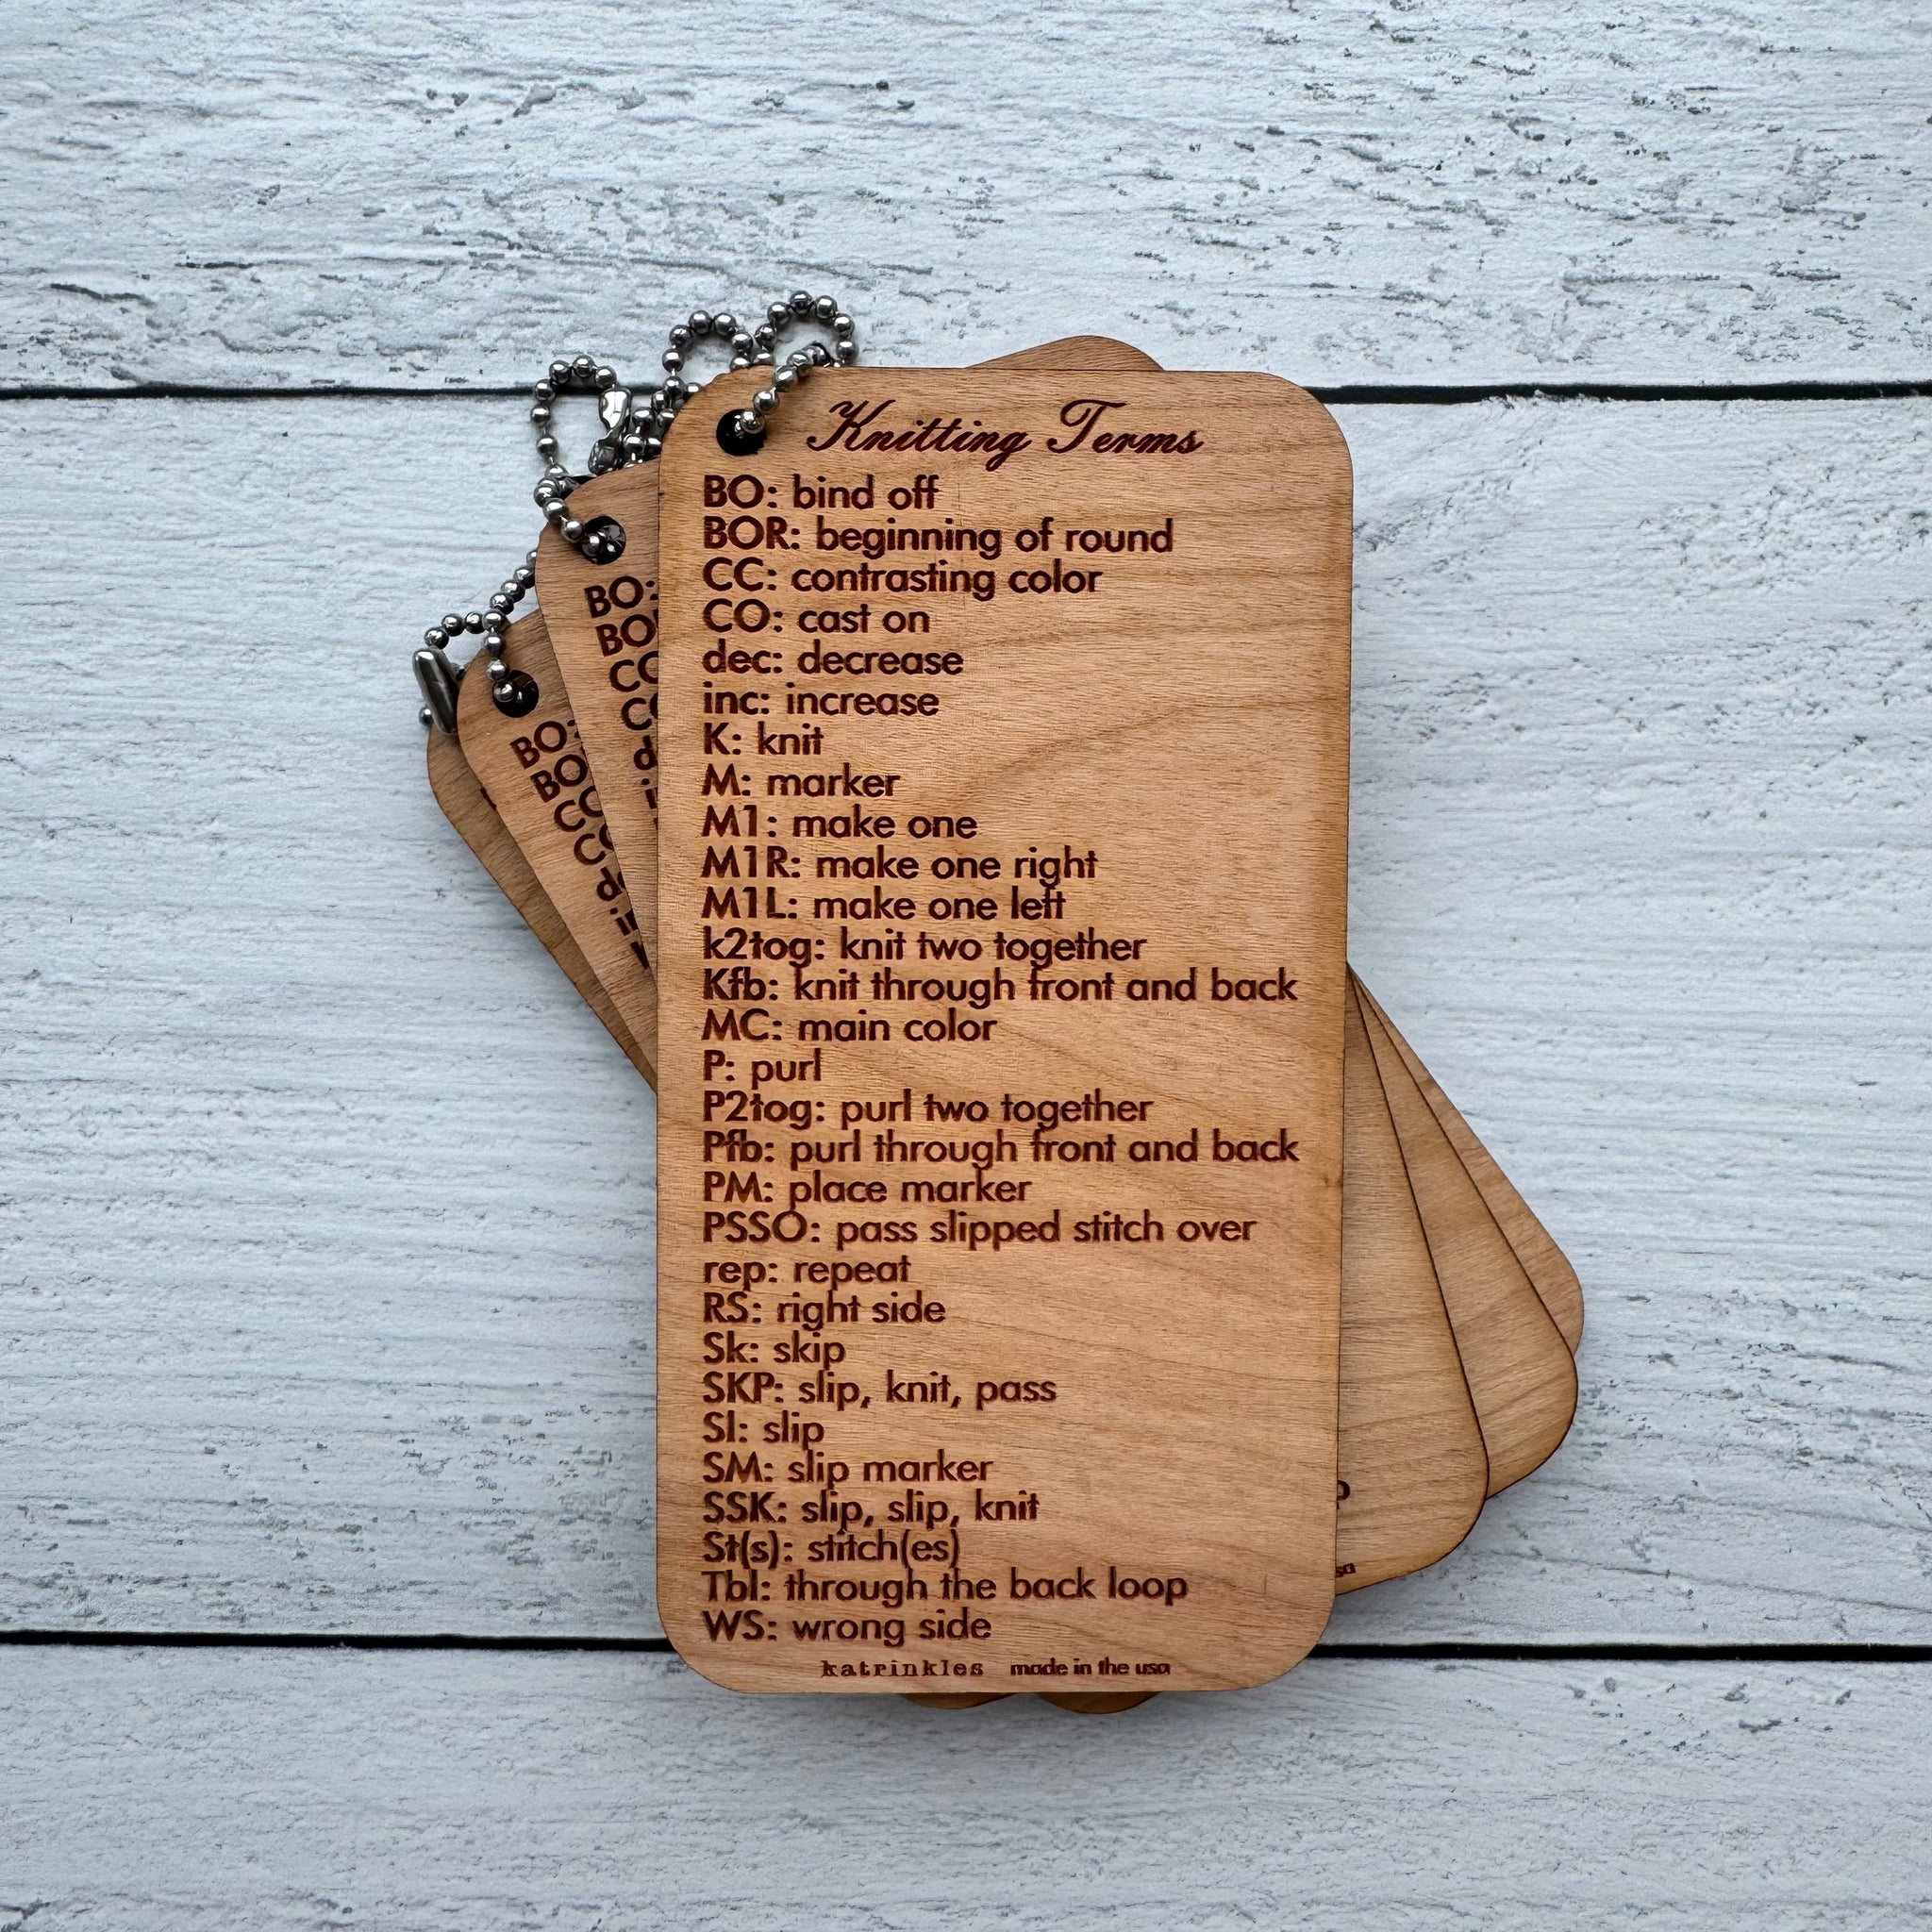 Knitting Terms
BO: bind off
BOR: beginning of round
CC: contrasting color
CO: cast on
dec: decrease
inc: increase
K: knit
M: marker
M1: make one
M1R: make one right
M1L: make one left
k2tog: knit two together
Kfb: knit through front and back
MC: main color
P: purl
P2tog: purl two together
Pfb: purl through front and back
PM: place marker
PSSO: pass slipped stitch over
rep: repeat
RS: right side
Sk: skip
SKP: slip, knit, pass
Sl: slip
SM: slip marker
SSK: slip, slip, knit
St(s): stitch(es)
Tbl: through the back loop
WS: wrong side
katrinkles made in the usa
BO:
BO: